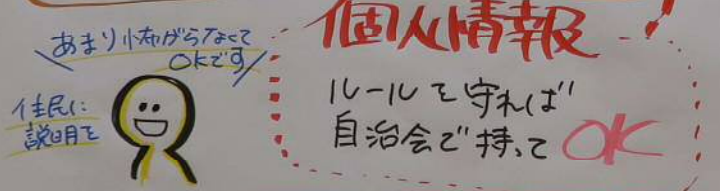 あまり怖がらなくて
OKです
住民に
説明を
個人情報
ルールを守れば
自治会で持ってOK